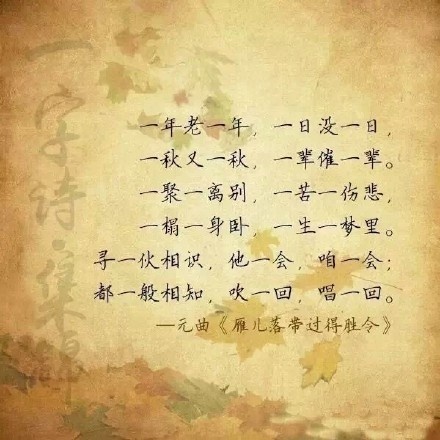 一字诗·集锦
一年老一年，一日没一日，
一秋又一秋，一辈催一辈。
一聚一离别，一苦一伤悲，
一榻一身卧，一生一梦里。
寻一伙相识，他一会，咱一会；
都一般相知，吹一回，唱一回。
—元曲《雁儿落带过得胜令》